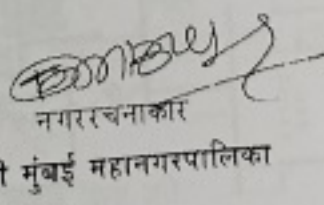 नगररचनाकार
मुंबई महानगरपालिका